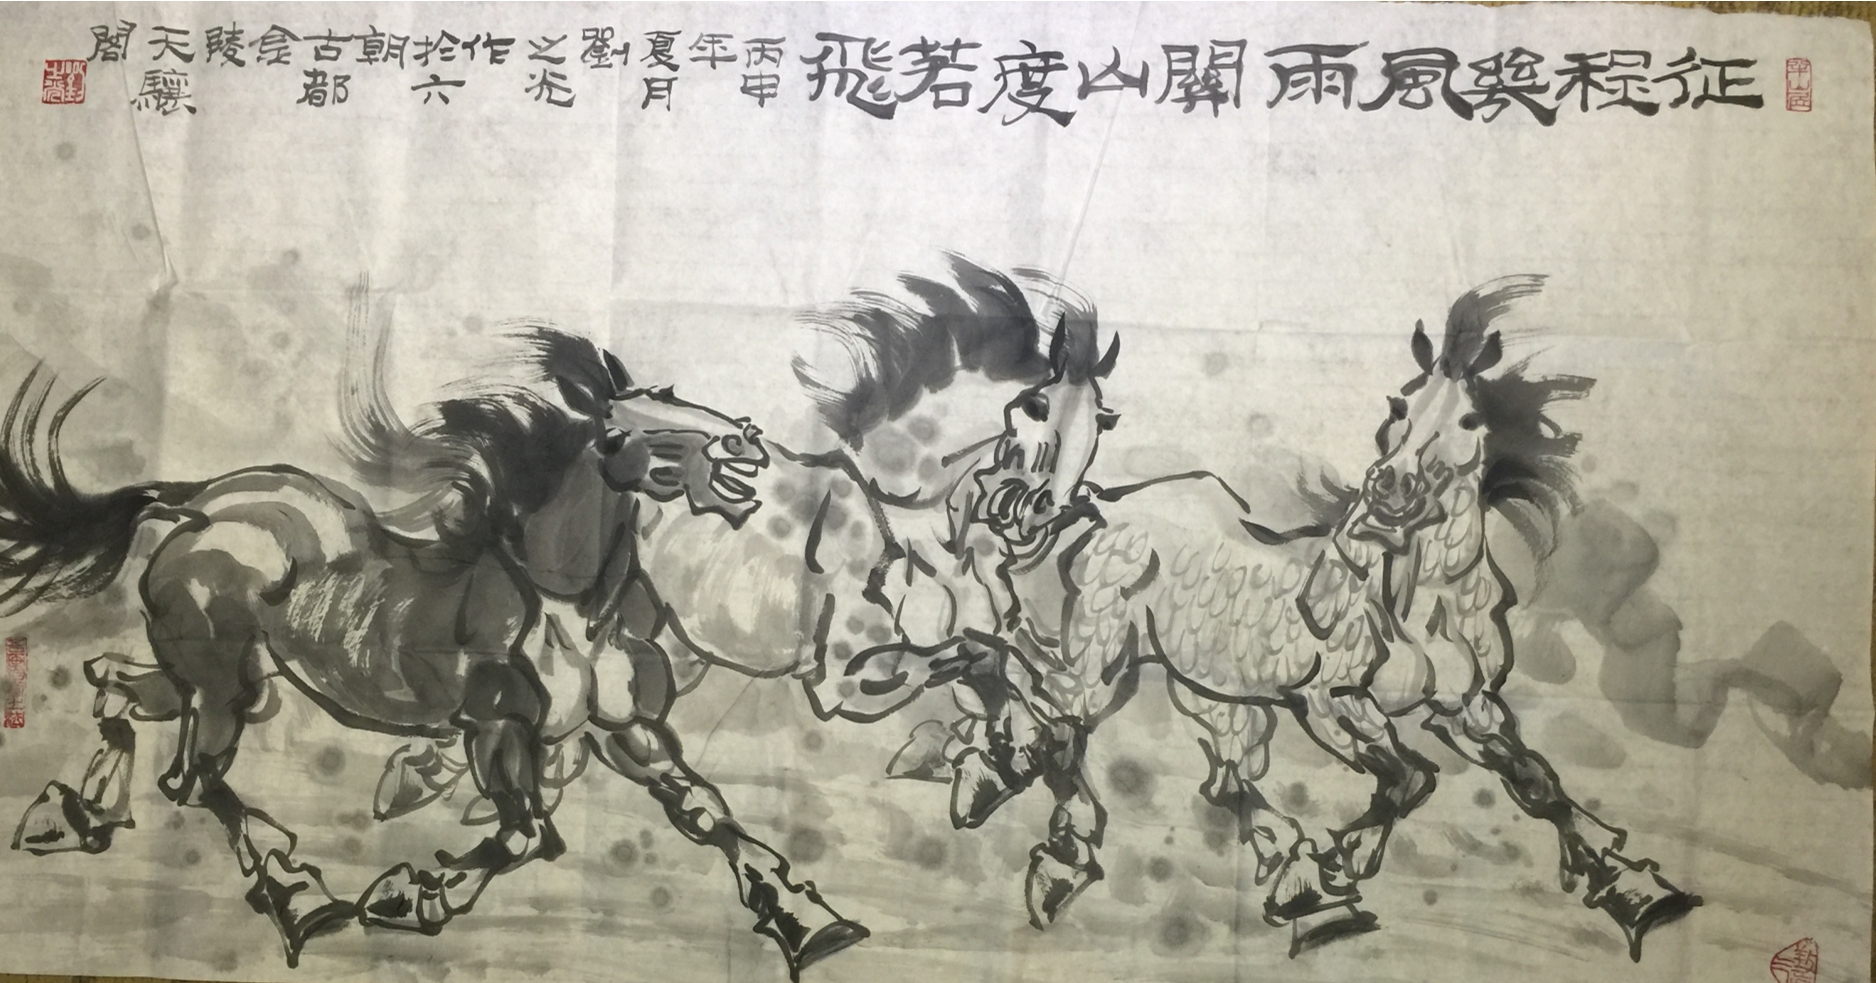 征程幾風雨關山度若飛
丙申年夏月劉之光作於六朝古都金陵天驤閣
劉之光